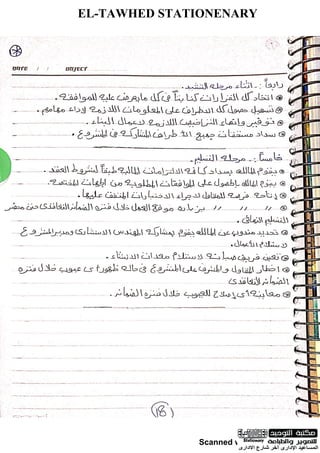 EL-TAWHED STATIONENARY
DATE / / OBJECT
رابعاً :- أثناء مرحلة التنفيذ.
اتخاذ كل القرارات كتابةً فى كل ما يعرض عليه للموافقة.
تسهيل حصول كل الأطراف على المعلومات اللازمة لأداء مهامهم.
توفير وإنهاء التراخيص اللازمة لأعمال البناء.
سداد مستحقات جميع الأطراف المشاركة فى المشروع.
خامساً :- مرحلة التسليم.
يقوم المالك بسداد كافة الالتزامات المالية طبقاً لشروط العقد.
يقوم المالك بالحصول على الموافقات المطلوبة من الجهات المختصة.
إتاحة فرصة للمقاول لإجراء الاختبارات المتفق عليها.
// // // بزيارة موقع العمل خلال فترة الضمان التعاقدى حتى محضر
التسليم النهائى.
تحديد مندوب عن المالك يقوم بمشاركة المهندس الاستشارى ومدير المشروع
لاستلام الأعمال.
تعيين فريق صيانة لاستلام معدات الإنشاء.
إخطار المقاول والمشرف على المشروع فى حالة ظهور أى عيوب خلال فترة
الضمان التعاقدى
معاينة أى إصلاح للعيوب خلال فترة الضمان.
18
Scanned
مكتبة التوحيد
للتصوير والطباعة
Stationery
المساعيد الإدارى آخر شارع الإدارى